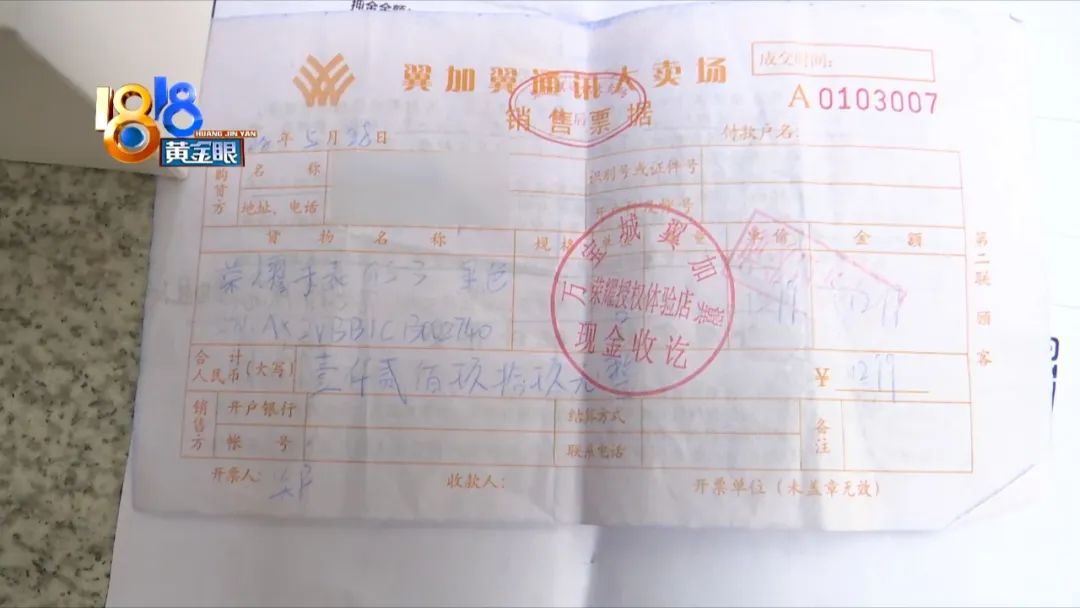 押金金额:
1818
HUANG JIN YAN
黄金眼
翼加翼通讯大卖场
成交时间:
A 0103007
销售票据
年5月28日
付款户名:
购货方
名 称
识别号或证件号
地址、电话
货物名称
规格
单价
金额
荣耀手表
1299
1299
万
金
城
翼
加
荣耀授权体验店
现金收讫
合计人民币(大写)
壹仟贰佰玖拾玖元整
¥ 1299
销售方
开户银行
结算方式
备注
帐 号
联系电话
开票人:
收款人:
开票单位(未盖章无效)
第二联 顾客